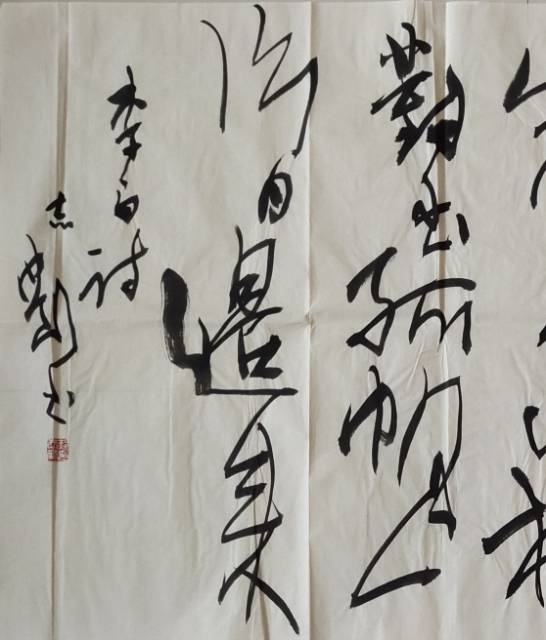 對出孤帆一
片日邊來
李白詩
志書